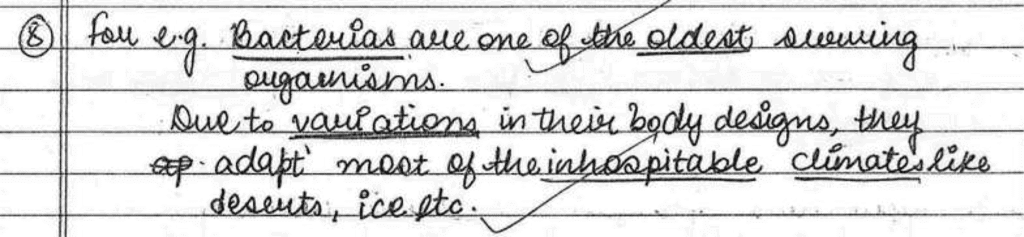 8 for e.g. Bacterias are one of the oldest surviving
organisms.
Due to variations in their body designs, they
adapt most of the inhospitable climates like
deserts, ice etc.